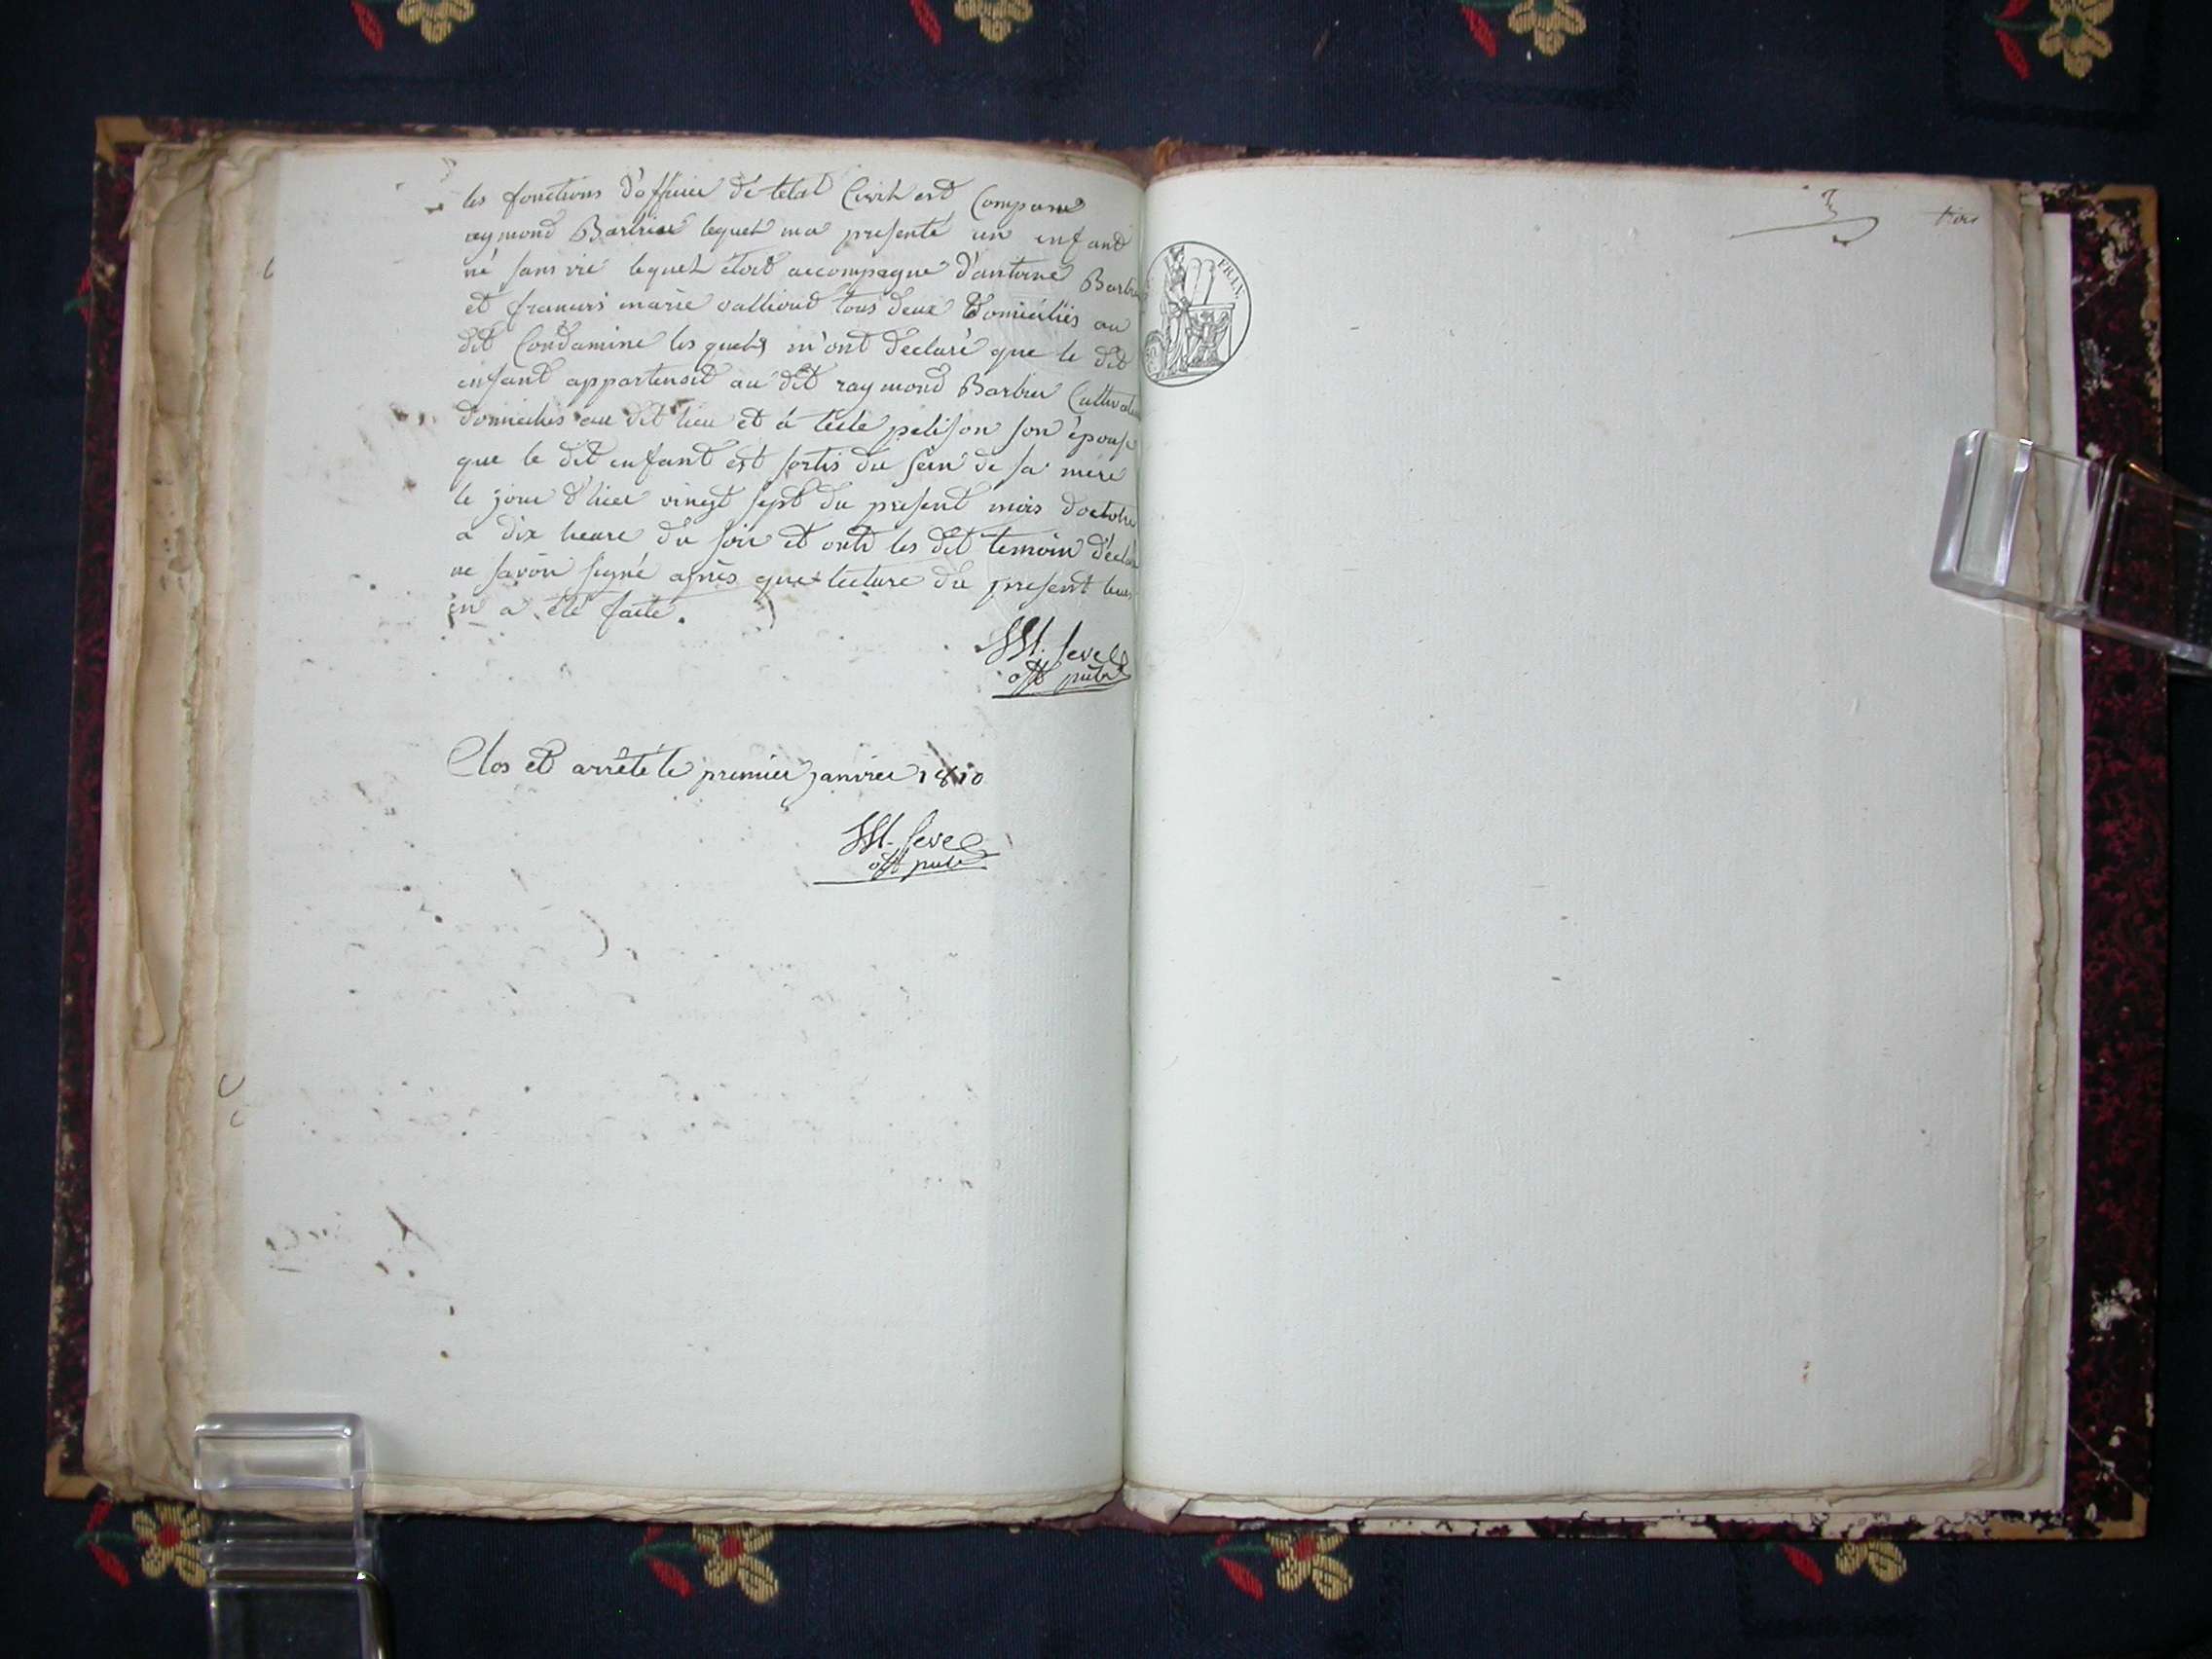 les fonctions d'officier de letat Civil est Comparu
raymond Barbier lequel ma presenté un enfant
né sans vie lequel étoit accompagné d'antoine Barbie
et francois marie vallioud tous deux Domiciliés au
dit Condamine les quels m'ont declaré que le dit
enfant appartenoit au dit raymond Barbier Cultivateur
domicilies au dit lieu et á son épouse
que le dit enfant est sortis du sein de sa mere
le jour d'hier vingt sept du present mois doctobre
a dix heure du soir et ont les dit temoin déclaré
ne savoir signé après que lecture du present leur
en a été faite.
off pub
Clos et arrêté le premier janvier 1810
off pub
FRAN.